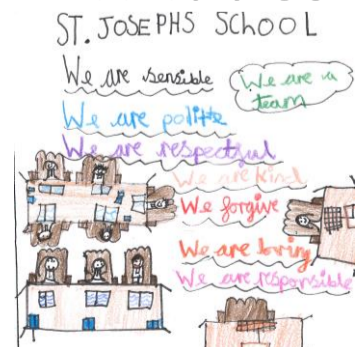 ST. JOSEPHS SCHOOL
We are sensible
We are a
team
We are polite
We are respectful
We are kind
We forgive
We are loving
We are responsible